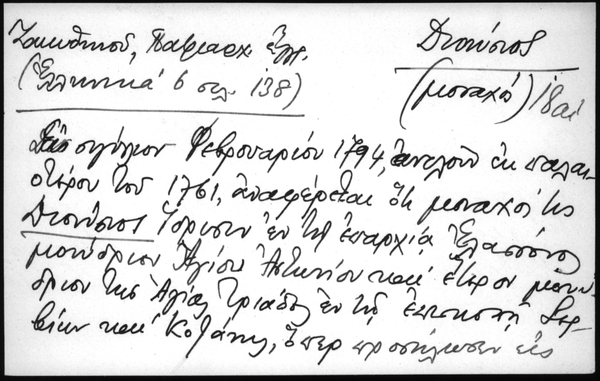 Ζακυθηνού, Πατριαρχ. έγγρ.
(Ελληνικά 6 σελ. 138)
Διονύσιος
(μοναχός) 18 αἰ
Εἰς σιγίλλιον Φεβρουαρίου 1794, ἀντλοῦν ἐκ παλαι-
οτέρου τοῦ 1761, ἀναφέρεται ὅτι μοναχός τις
Διονύσιος ἵδρυσεν ἐν τῇ ἐπαρχίᾳ Ἐλασσῶνος
μονύδριον Ἁγίου Ἀντωνίου καί ἕτερον μονύ-
δριον τῆς Ἁγίας Τριάδος ἐν τῇ ἐπισκοπῇ Σερ-
βίων καί Κοζάνης, ὅπερ προσήλωσεν εἰς